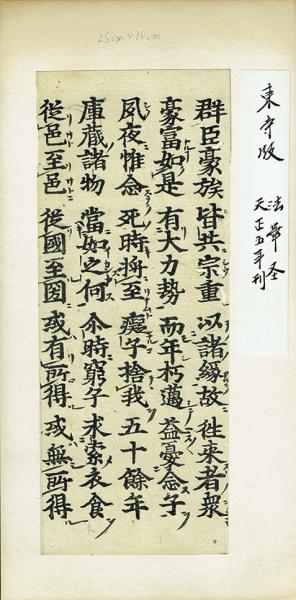 25cm×10cm
東寺版
法華圣
天正五年刊
群臣豪族 皆共宗重 以諸縁故 往来者衆
豪富如是 有大力勢 而年朽邁 益憂念子
夙夜惟念 死時將至 癡子捨我 五十餘年
庫蔵諸物 當如之何 尒時窮子 求索衣食
從邑至邑 從國至國 或有所得 或無所得